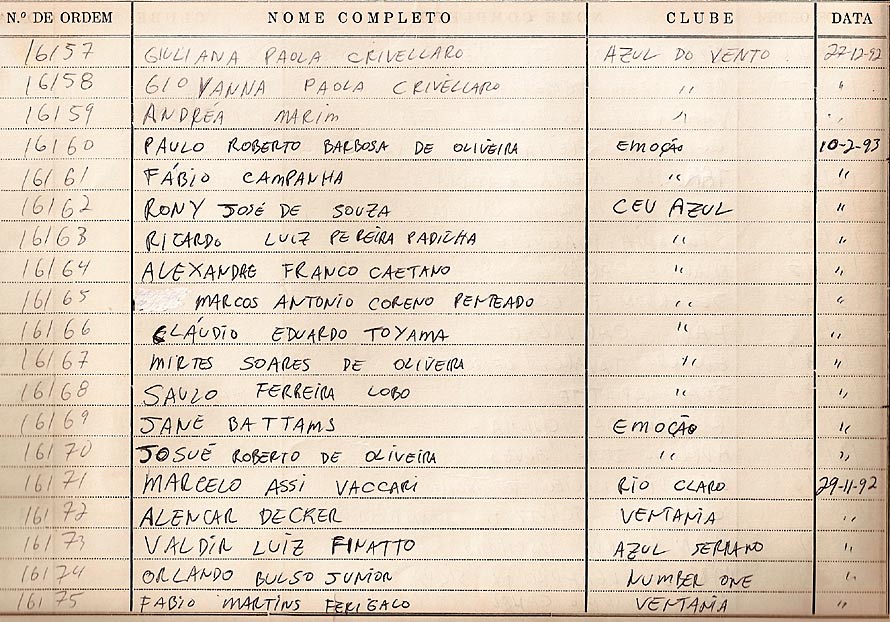 N.º DE ORDEM NOME COMPLETO CLUBE DATA
16157 GIULIANA PAOLA CRIVELLARO AZUL DO VENTO 27-12-92
16158 GIOVANNA PAOLA CRIVELLARO " "
16159 ANDRÉA MARIM " "
16160 PAULO ROBERTO BARBOSA DE OLIVEIRA EMOÇÃO 10-2-93
16161 FÁBIO CAMPANHA " "
16162 RONY JOSÉ DE SOUZA CEU AZUL "
16163 RICARDO LUIZ PEREIRA PADILHA " "
16164 ALEXANDRE FRANCO CAETANO " "
16165 MARCOS ANTONIO CORENO PENTEADO " "
16166 CLÁUDIO EDUARDO TOYAMA " "
16167 MIRTES SOARES DE OLIVEIRA " "
16168 SAULO FERREIRA LOBO " "
16169 JANE BATTAMS EMOÇÃO "
16170 JOSUÉ ROBERTO DE OLIVEIRA " "
16171 MARCELO ASSI VACCARI RIO CLARO 29-11-92
16172 ALENCAR DECKER VENTANIA "
16173 VALDIR LUIZ FINATTO AZUL SERRANO "
16174 ORLANDO BULSO JUNIOR NUMBER ONE "
16175 FABIO MARTINS VENTANIA "